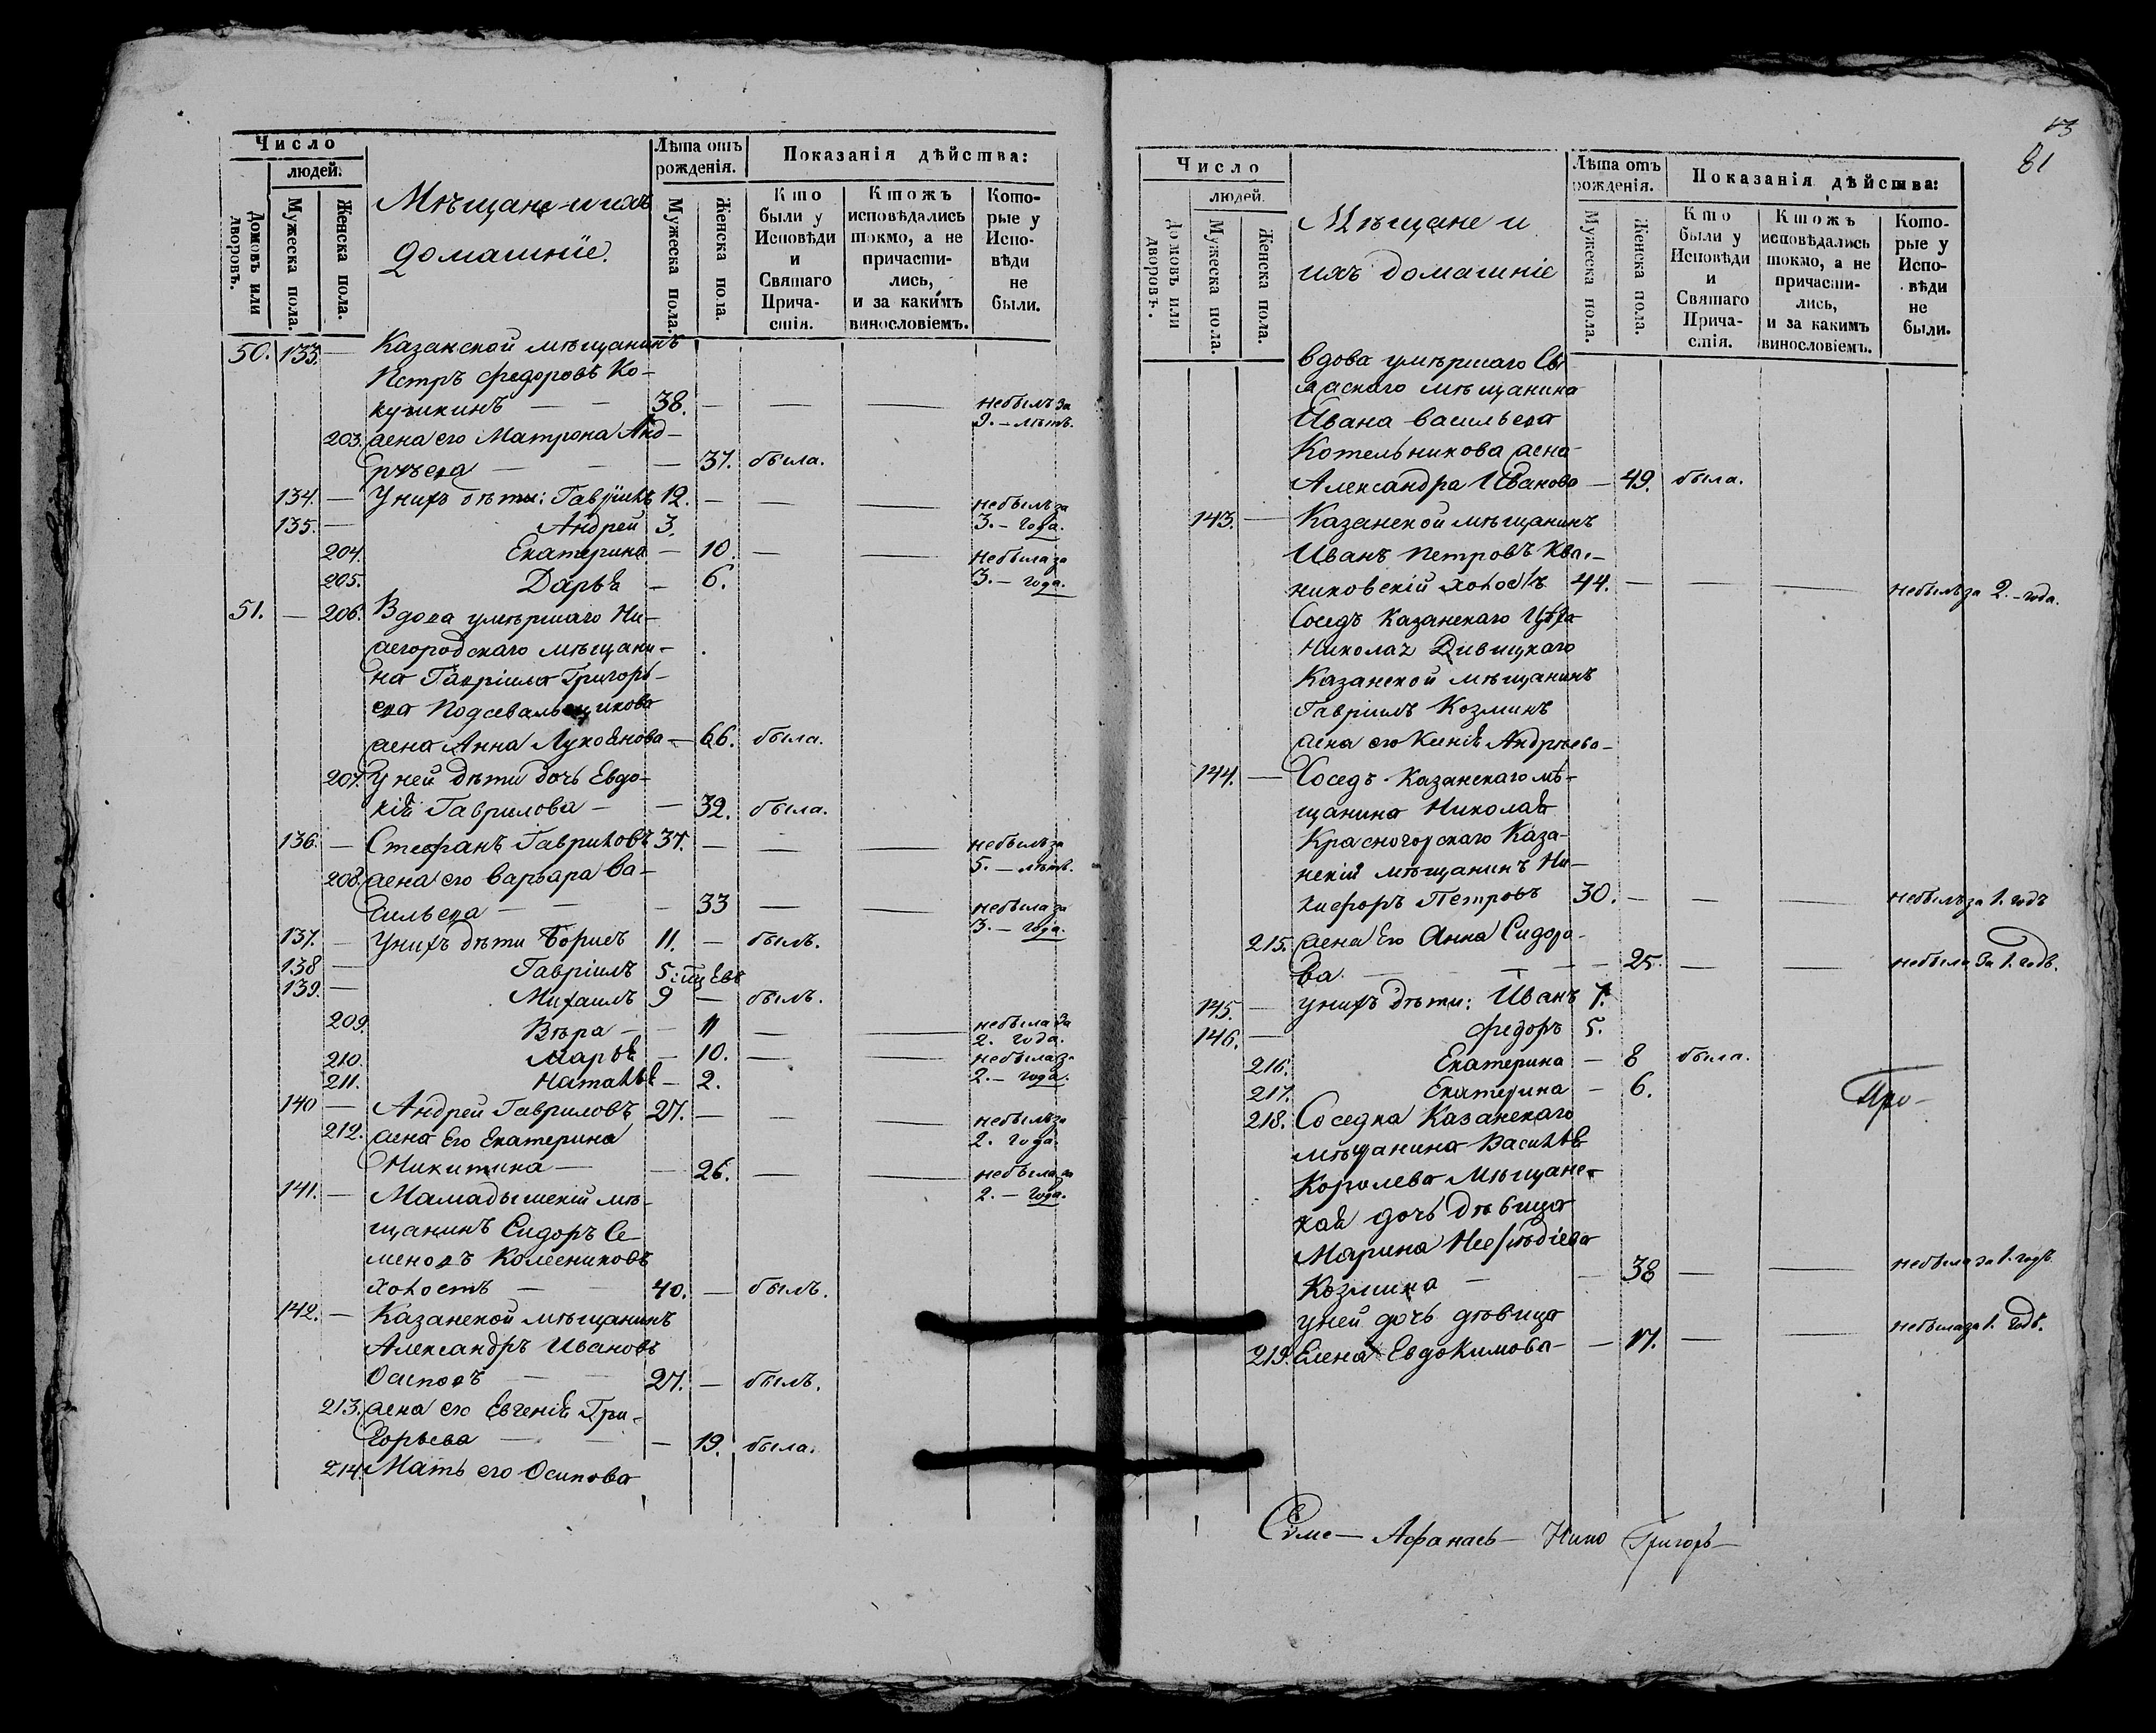 Число
людей.
Домовъ или дворовъ.
Мужеска пола.
Женска пола.
Мѣщане и ихъ
домашніе.
Лѣта отъ рожденія.
Мужеска пола.
Женска пола.
Показанія дѣйства:
Кто были у Исповѣди и Святаго Прича-стія.
Ктожъ исповѣдались токмо, а не причасти-лись, и за какимъ винословіемъ.
Кото-рые у Испо-вѣди не были.
50. 133. — Казанской мѣщанинъ
Петръ Федоровъ Ко-
кушкинъ — — 38. — — — небылъ за
9. — лѣтъ.
203. жена его Матрона Анд-
рѣева — — — 37. была.
134. — У нихъ дѣти: Гавріилъ 12. — — — небылъ за
135. — Андрей 3. 3. — года.
204. Екатерина — 10. — — небыла за
205. Дарья — 6. 3. — года.
51. — 206. Вдова умѣршаго Ни-
жегородскаго мѣщани-
на Гавріила Григорь-
ева Подсевальщикова
жена Анна Лукоянова — 66. была.
207. У ней дѣти дочь Евдо-
кія Гаврилова — — 32. была.
136. — Стефанъ Гавриловъ 37. — — — небылъ за
5. — лѣтъ.
208. жена его Варвара Ва-
сильева — — — 33 — — небыла за
3. — года.
137. — У нихъ дѣти Борисъ 11. — былъ.
138 — Гавріилъ 5
139. — Михаилъ 9 — былъ.
209. Вѣра — — 11 — — небыла за
2. года.
210. Марья — 10. — — небыла за
211. Наталья — 2. 2. — года.
140 — Андрей Гавриловъ 27. — — — небылъ за
2. года.
212. жена Его Екатерина
Никитина — — 26. — — небыла за
2. — года.
141. — Мамадышскій мѣ-
щанинъ Сидоръ Се-
меновъ Колесниковъ
холостъ — — 40. — былъ.
142. — Казанской мѣщанинъ
Александръ Ивановъ
Осиповъ — — 27. — былъ.
213. жена его Евгенія Гри-
горьева — — — 19. была.
214. Мать его Осипова
81
Число
людей.
Домовъ или дворовъ.
Мужеска пола.
Женска пола.
Мѣщане и
ихъ домашніе
Лѣта отъ рожденія.
Мужеска пола.
Женска пола.
Показанія дѣйства:
Кто были у Исповѣди и Святаго Прича-стія.
Ктожъ исповѣдались токмо, а не причасти-лись, и за какимъ винословіемъ.
Кото-рые у Испо-вѣди не были.
вдова умѣршаго
мѣщанина
Ивана Васильева
Котельникова жена
Александра Иванова — 49. была.
143. — Казанской мѣщанинъ
Иванъ Петровъ
никовскій холостъ 44. — — — небылъ за 2. — года.
Соседъ Казанскаго
Казанской мѣщанинъ
Гавріилъ Козминъ
жена его Андрѣева —
144. — Соседъ Казанскаго мѣ-
щанина Николая
Красногорскаго Каза-
нскій мѣщанинъ Ни-
кифоръ Петровъ 30. — — — небылъ за 1. годъ
215. жена Его Анна Сидоро-
ва — — — 25. — — небыла За 1. годъ.
145. — У нихъ дѣти: Иванъ 7.
146. — Федоръ 5.
216. Екатерина — 8 была.
217. Екатерина — 6.
Про-
218. Соседка Казанскаго
мѣщанина Василья
Королева Мѣщанс-
кая дочь дѣвица
Марина
Козмина — — 38 — — небыла за 1. годъ
у ней дочь дѣвица
219. Елена Евдокимова — — 17. — — небыла за 1. годъ.
Афанась— Григорь—